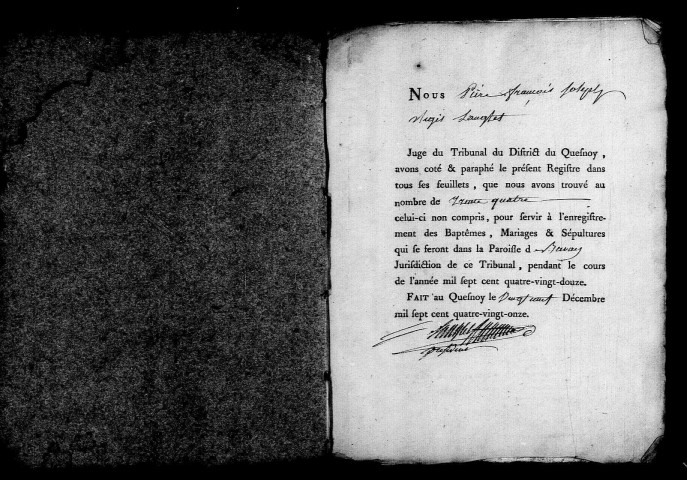 Nous Pière françois Joseph
Régis
Juge du Tribunal du Diſtrict du Queſnoy,
avons coté & paraphé le préſent Regiſtre dans
tous ſes feuillets, que nous avons trouvé au
nombre de trente quatre
celui-ci non compris, pour ſervir à l'enregiſtre-
ment des Baptêmes, Mariages & Sépultures
qui ſe feront dans la Paroiſſe d Bavay
Jurisdiction de ce Tribunal, pendant le cours
de l'année mil ſept cent quatre-vingt-douze.
Fait au Queſnoy le Décembre
mil ſept cent quatre-vingt-onze.